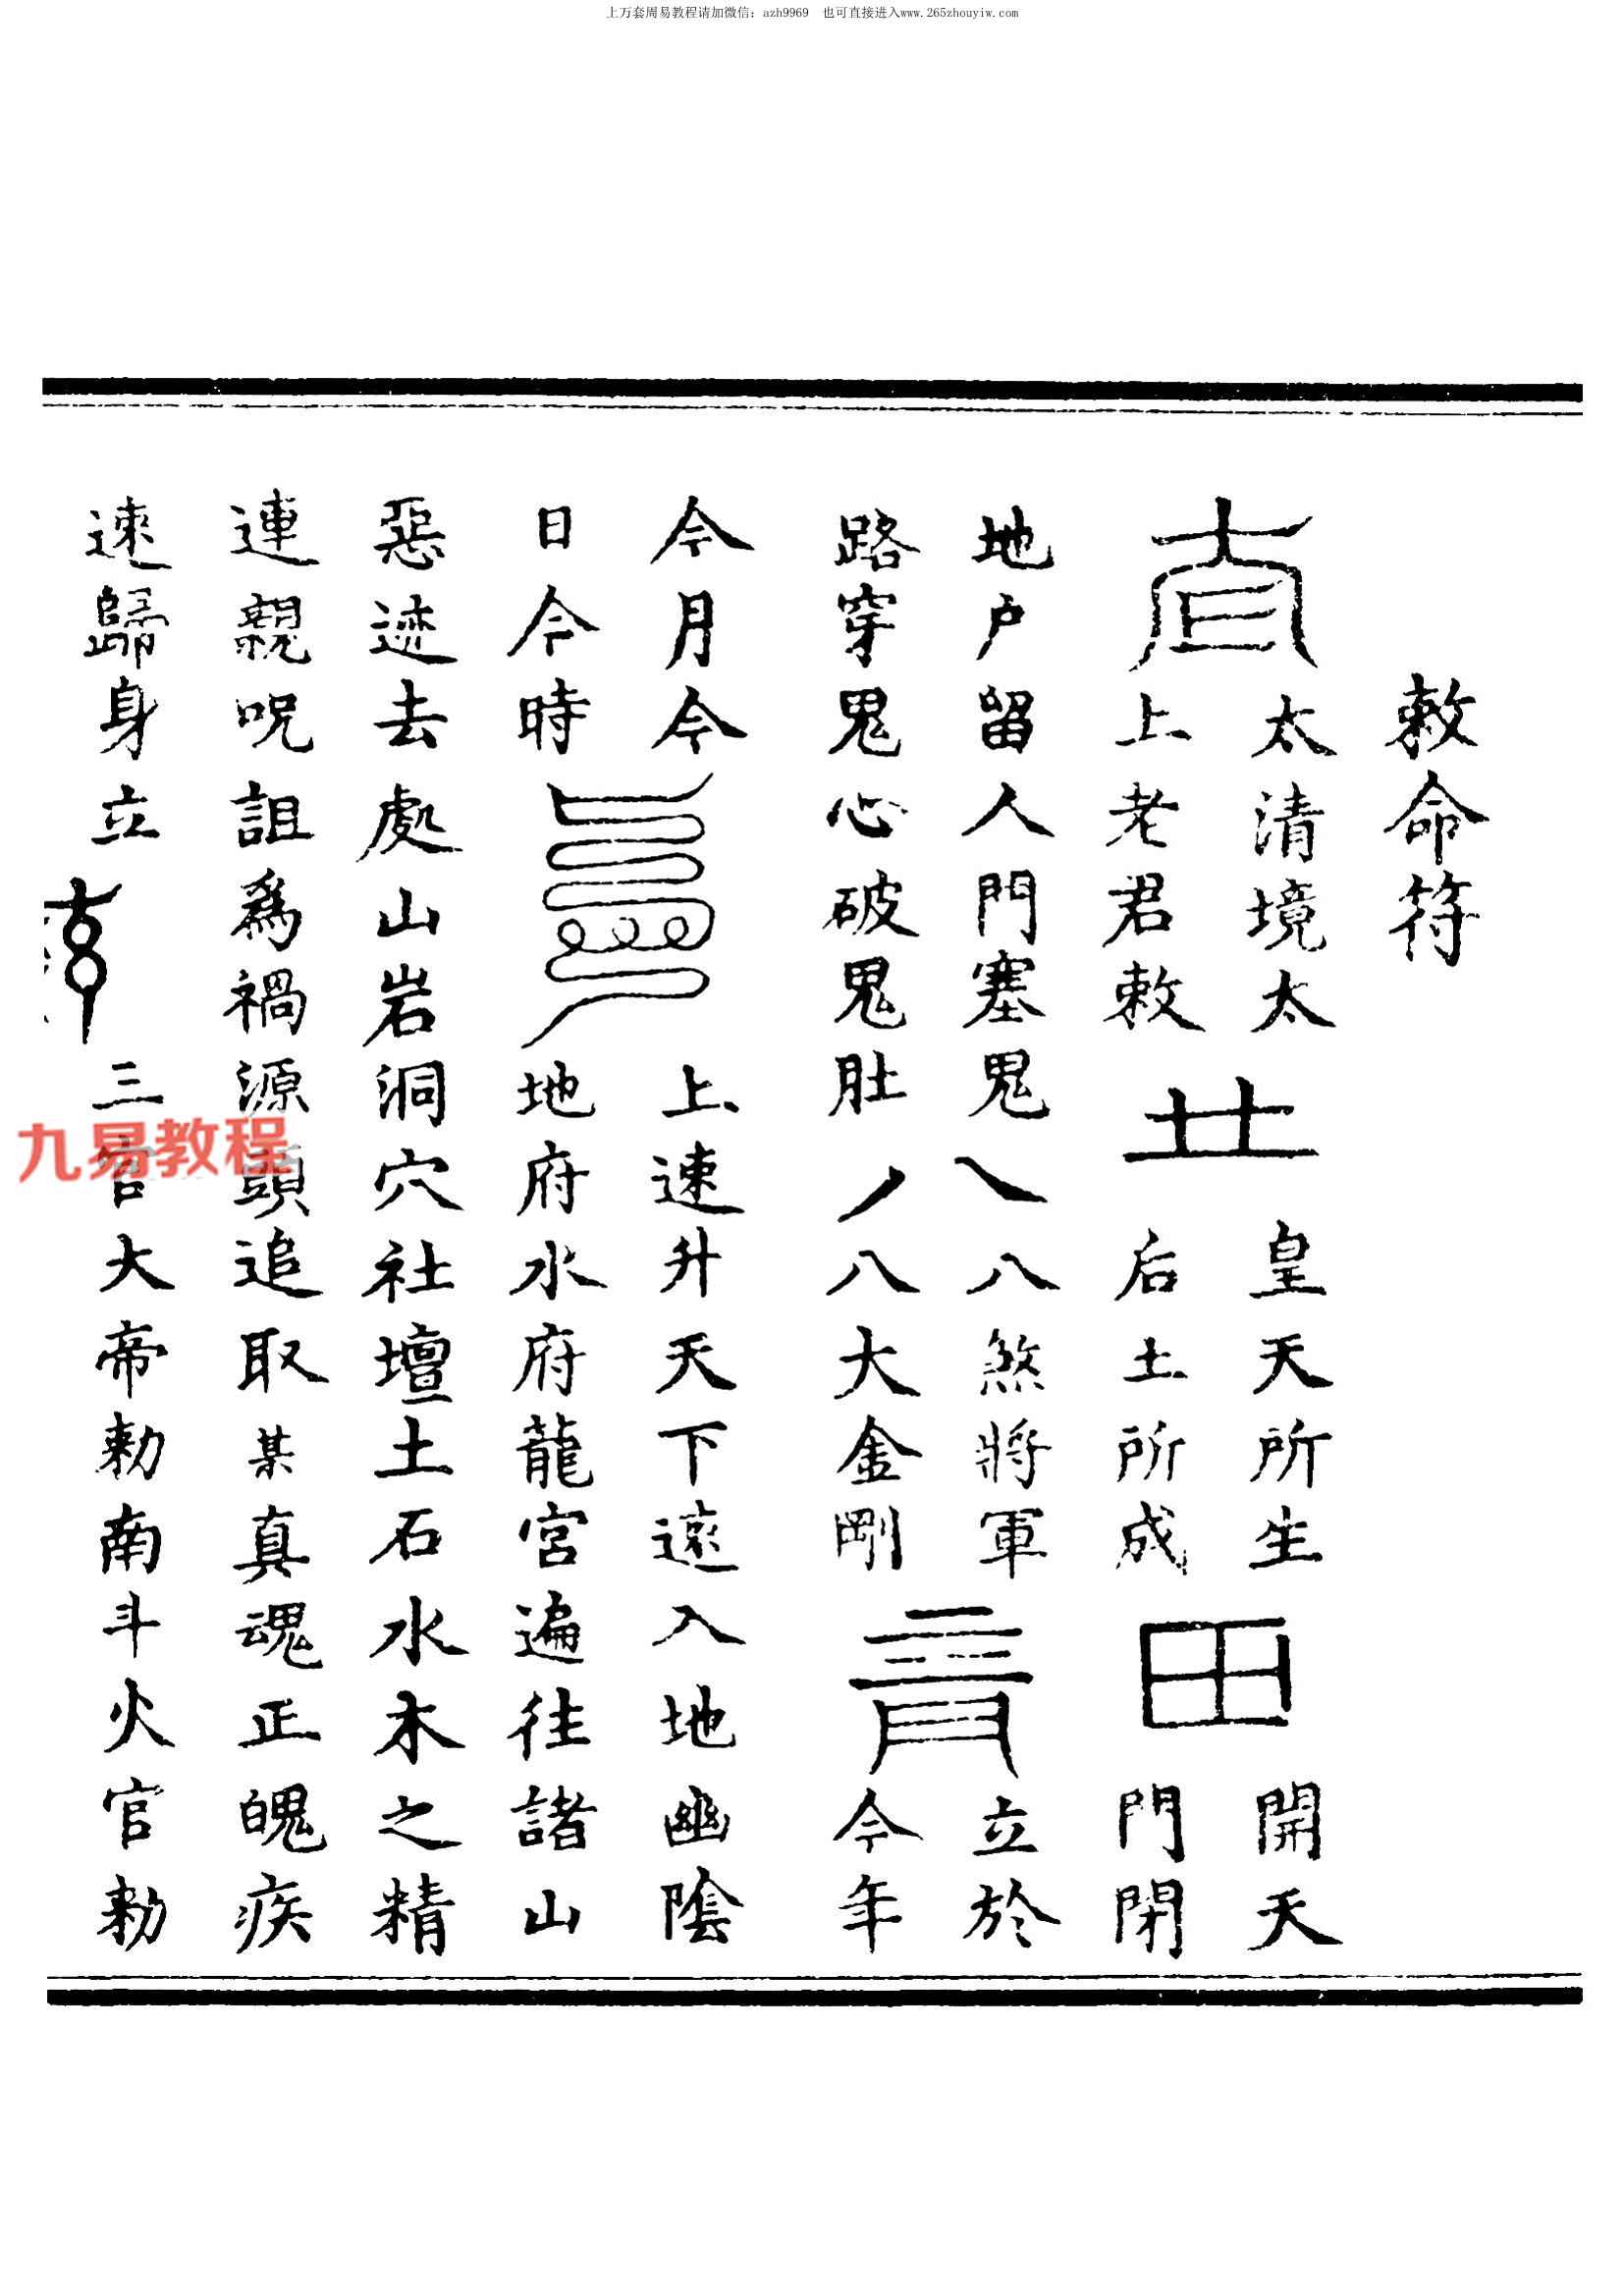 上万套周易教程请加微信：azh9969 也可直接进入www.265zhouyiw.com
敕命符
太清境太
上老君敕
皇天所生
后土所成
田
開天
門閉
地户留人門塞鬼
路穿鬼心破鬼肚
八煞將軍
八大金剛
立於
今年
今月今
日今時
上速升天下遠入地幽陰
地府水府龍宮遍往諸山
惡迹去處山岩洞穴社壇土石水木之精
連親呪詛爲禍源頭追取某真魂正魄疾
速歸身立
三官大帝勅南斗火官勅
九易教程